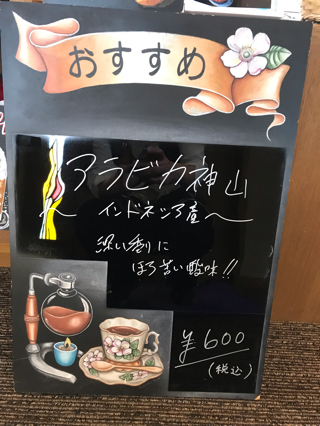 おすすめ
アラビカ神山
〜インドネシア産〜
深い香りに
ほろ苦い酸味!!
¥600
(税込)